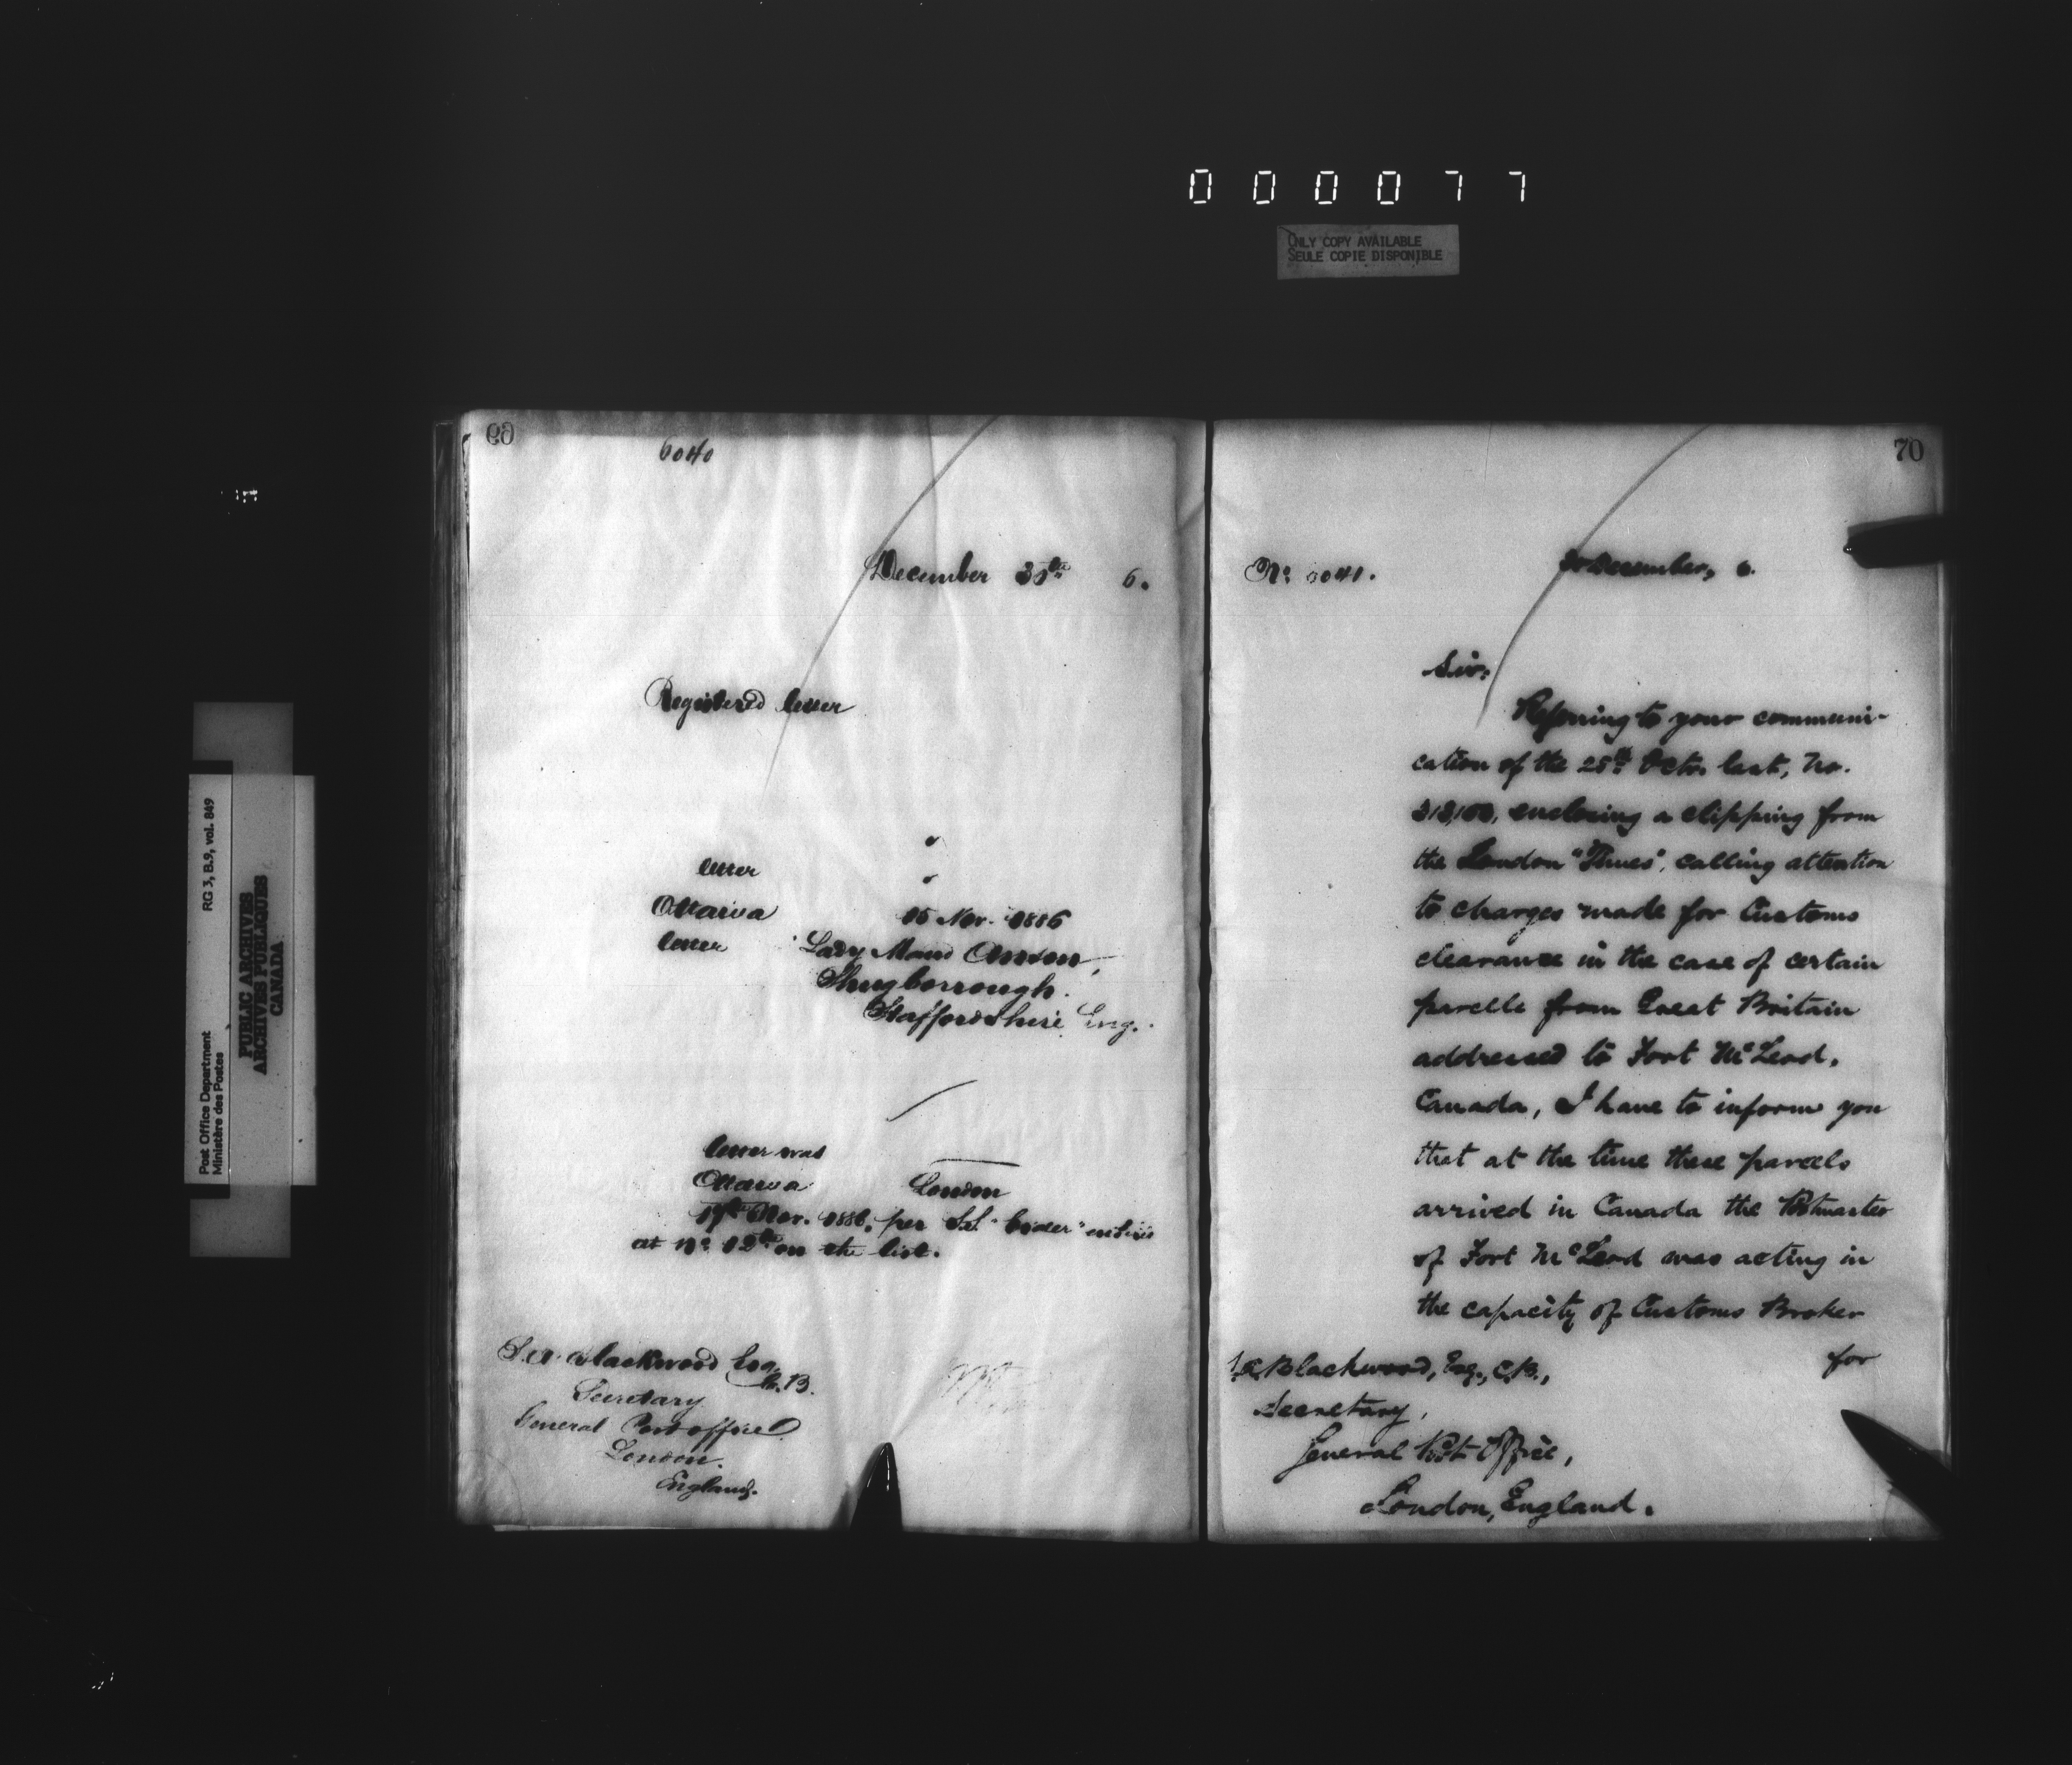 000077
ONLY COPY AVAILABLE
SEULE COPIE DISPONIBLE
Post Office Department
Ministère des Postes
RG 3, B.9, vol. 849
PUBLIC ARCHIVES
ARCHIVES PUBLIQUES
CANADA
69
6040
December 6.
Registered letter
letter
Ottawa 15 Nov. 1886
letter Lady Maud Anson,
Shugborrough.
Staffordshire Eng.
letter was
Ottawa London
17th Nov. 1886, per
at No 12th on the list.
Blackwood Esq.
C.B.
Secretary
General Post office
London.
England.
70
No 6041.
December, 6.
Sir,
Referring to your communi-
cation of the 25th Octr. last, No.
enclosing a clipping from
the London "Times", calling attention
to charges made for Customs
clearance in the case of certain
parcels from Great Britain
addressed to Fort McLeod,
Canada, I have to inform you
that at the time these parcels
arrived in Canada the Postmaster
of Fort McLeod was acting in
the capacity of Customs Broker
for
Blackwood, Esq., C.B.,
Secretary,
General Post Office,
London, England.